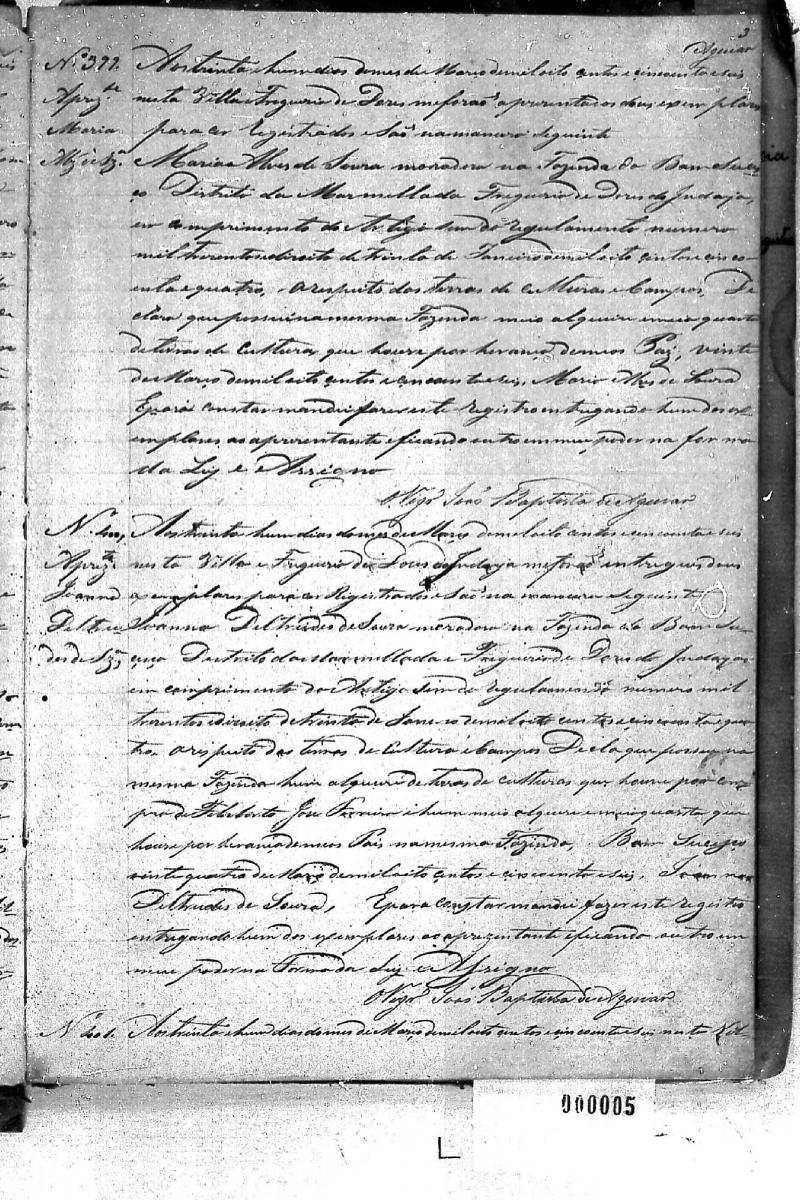 3
Aguiar
Nº 399. Aos trinta e hum dias do mes de Março de mil oito centos e cincoenta e seis
Aprezte nesta Villa e Freguezia de Dores me forão aprezentados dous exemplares
Maria para ser Registrados e São na maneira seguinte
Maria Alves de Souza moradora na Fazenda do Bom Suces
ço Distrito da Marmellada Freguezia de Dores do Indaja,
em comprimento do Artigo Sem do regulamento numero
mil trezentos e dizoito de trinta de Janeiro de mil oito centos e cinco
enta e quatro, a respeito das terras de culturas e Campos, De
clara que possui na mesma Fazenda meio alqueire e meia quarta
de terras de Cultura, que houve por herança de meos Pais, vinte
de Março de mil oito centos e cincoenta e seis, Maria Alves de Souza
E para constar mandei fazer este registro entregando hum dos ex
emplares ao aprezentante e ficando outro em meu poder na forma
da Ley e Assigno
O Vigrº João Baptista de Aguiar
Nº 400, Aos trinta e hum dias do mes de Março de mil oito centos e cincoenta e seis
Aprezte nesta Villa e Freguezia de Dores do Indaja me forão entregues dous
Joanna exemplares para ser Registrados e São na maneira Seguinte
Deltru Joanna Deltrudes de Souza moradora na Fazenda do Bom Su
des de Sza, ceço Destrito da Marmellada e Freguezia de Dores do Indaja
em comprimento do Artigo Sem do regulamento numero mil
trezentos e dizoito de trinta de Janeiro de mil oito centos e cincoenta e qua
tro, a respeito das terras de Cultura e Campos Decla que possui na
mesma Fazenda hum alqueire de terras de culturas que houve por com
pra de Feliberto Jose Ferreira e hum meio alqueire e meia quarta que
houve por herança de meos Pais na mesma Fazenda, Bom Sucesso
vinte quatro de Março de mil oito centos e cincoenta e seis, Joanna
Deltrudes de Souza, E para constar mandei fazer este registro
entregando hum dos exemplares ao aprezentante e ficando outro em
meu poder na Forma da Ley e Assigno
O Vigrº João Baptista de Aguiar
Nº 401. Aos trinta e hum dias do mes de Março de mil oito centos e cincoenta e seis nesta Vil-
000005
L